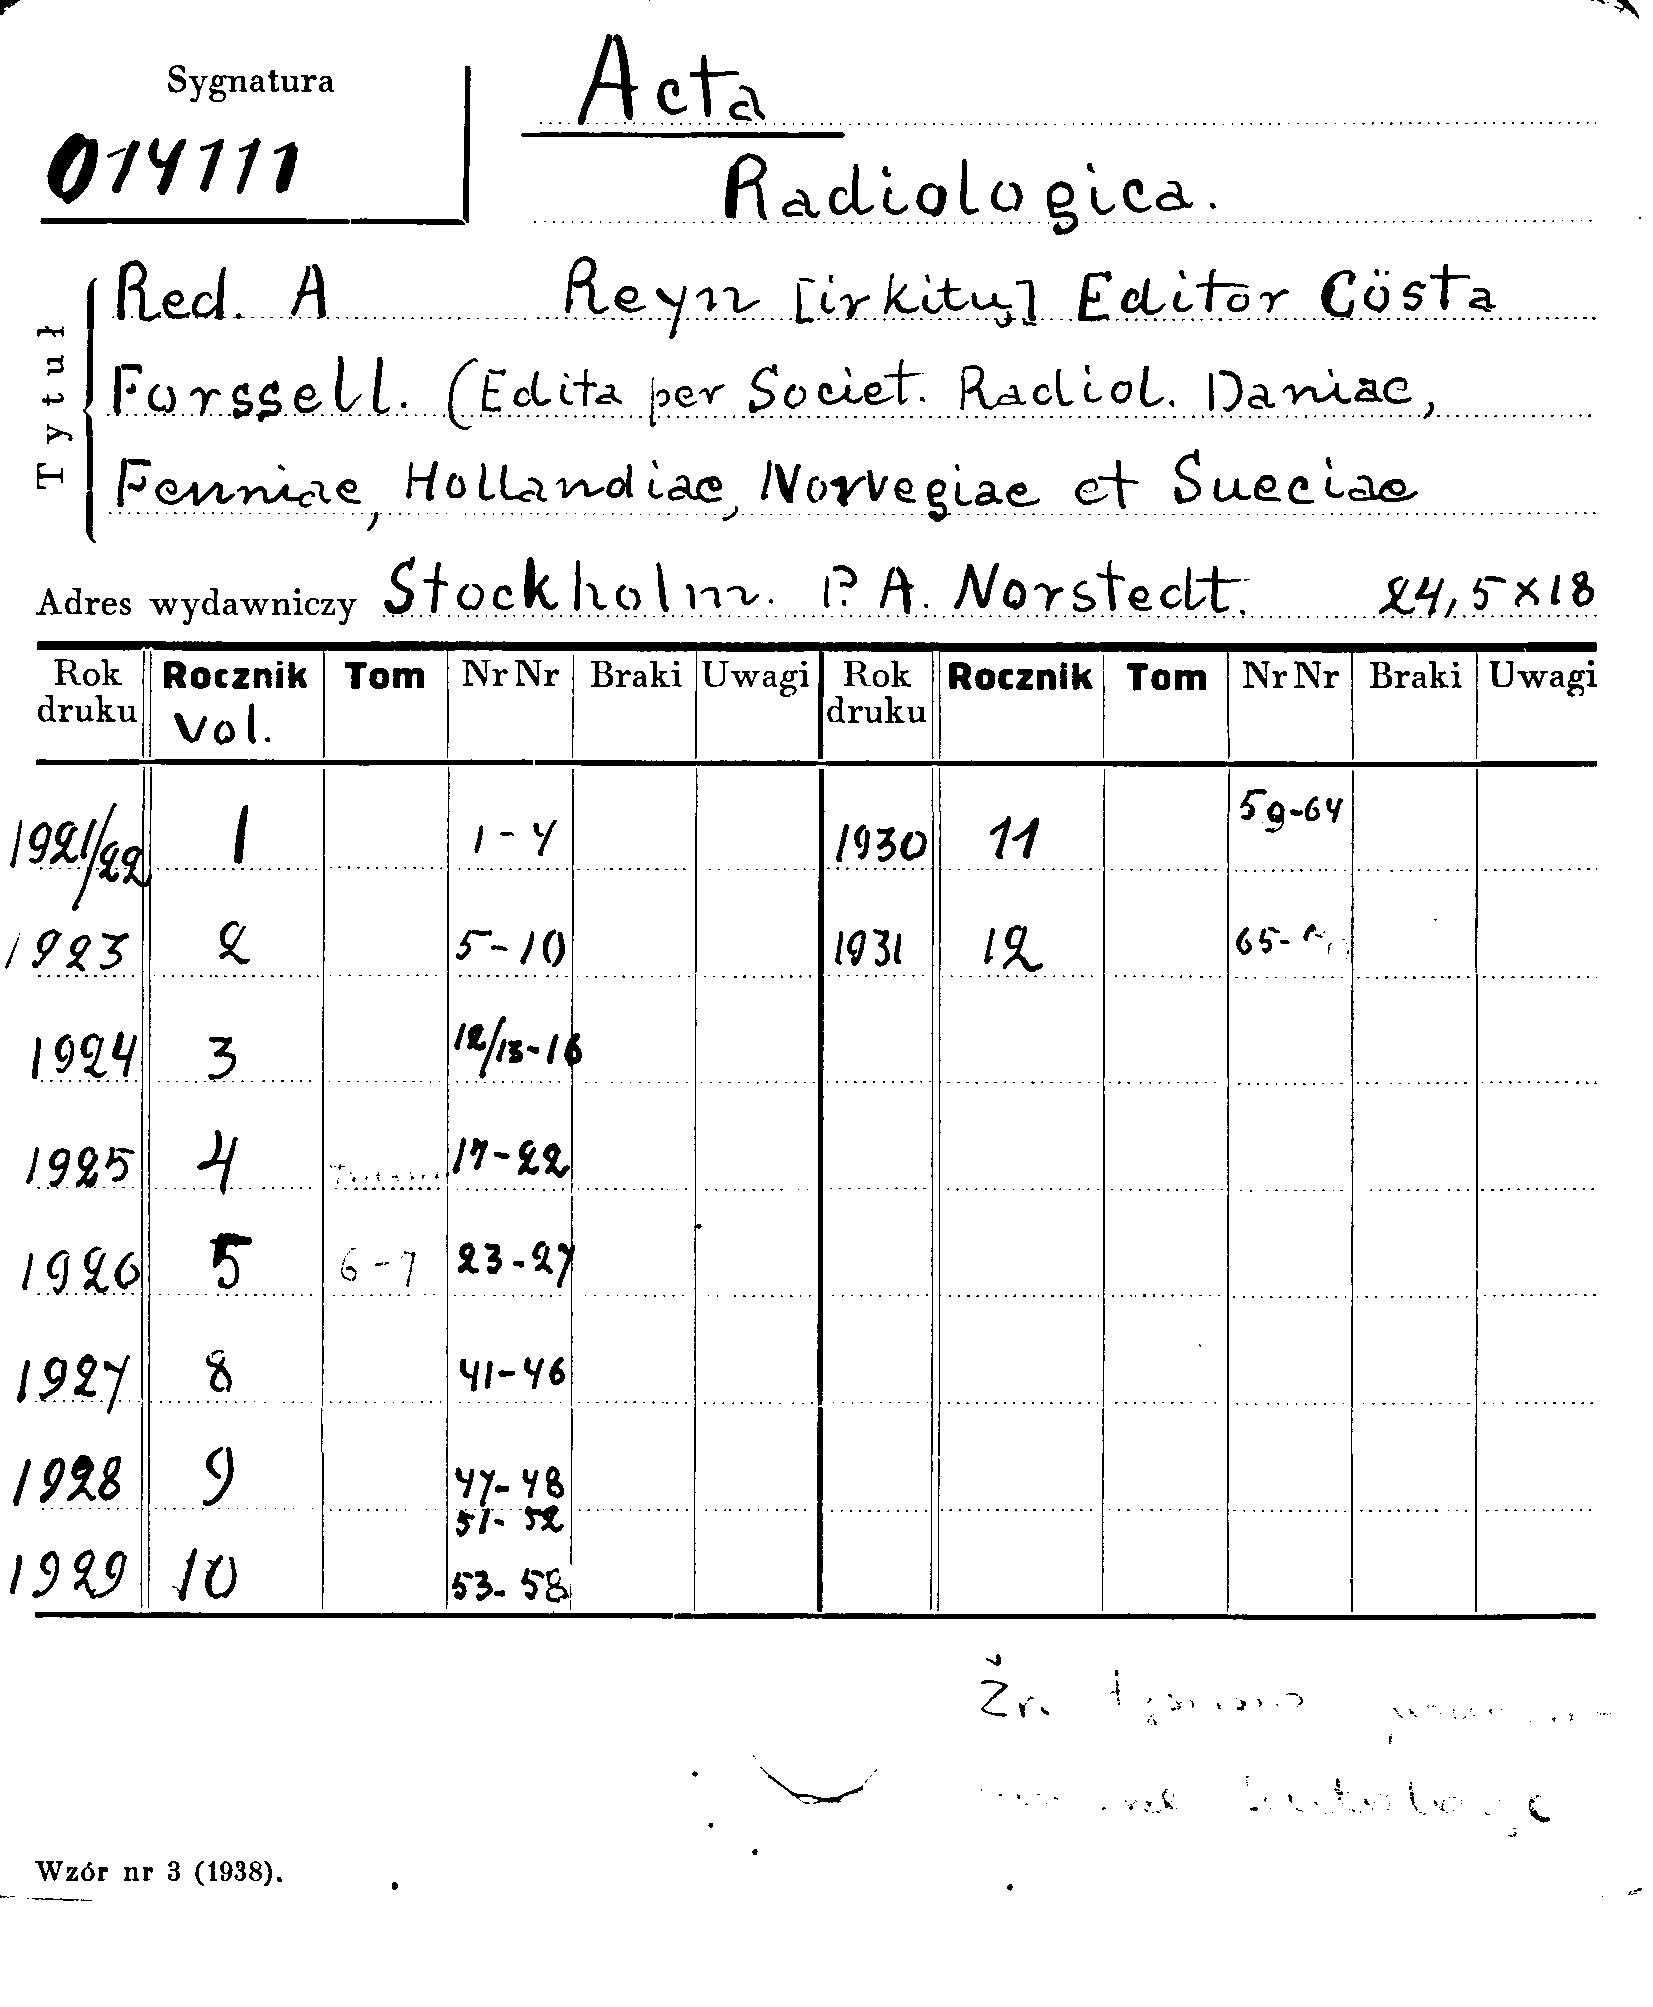 Sygnatura
014111
Acta
Radiologica.
Tytuł
Red. A Reyn [irkitų] Editor Cösta
Forssell. (Edita per Societ. Radiol. Daniae,
Fenniae, Hollandiae, Norvegiae et Sueciae
Adres wydawniczy Stockholm. P. A. Norstedt. 24,5×18
Rok druku Rocznik Vol. Tom Nr Nr Braki Uwagi Rok druku Rocznik Tom Nr Nr Braki Uwagi
1921/22 1 1-4 1930 11 59-64
1923 2 5-10 1931 12 65-
1924 3 12/13-16
1925 4 17-22
1926 5 6-7 23-27
1927 8 41-46
1928 9 47-48
51-52
1929 10 53-58
Žr.
Wzór nr 3 (1938).